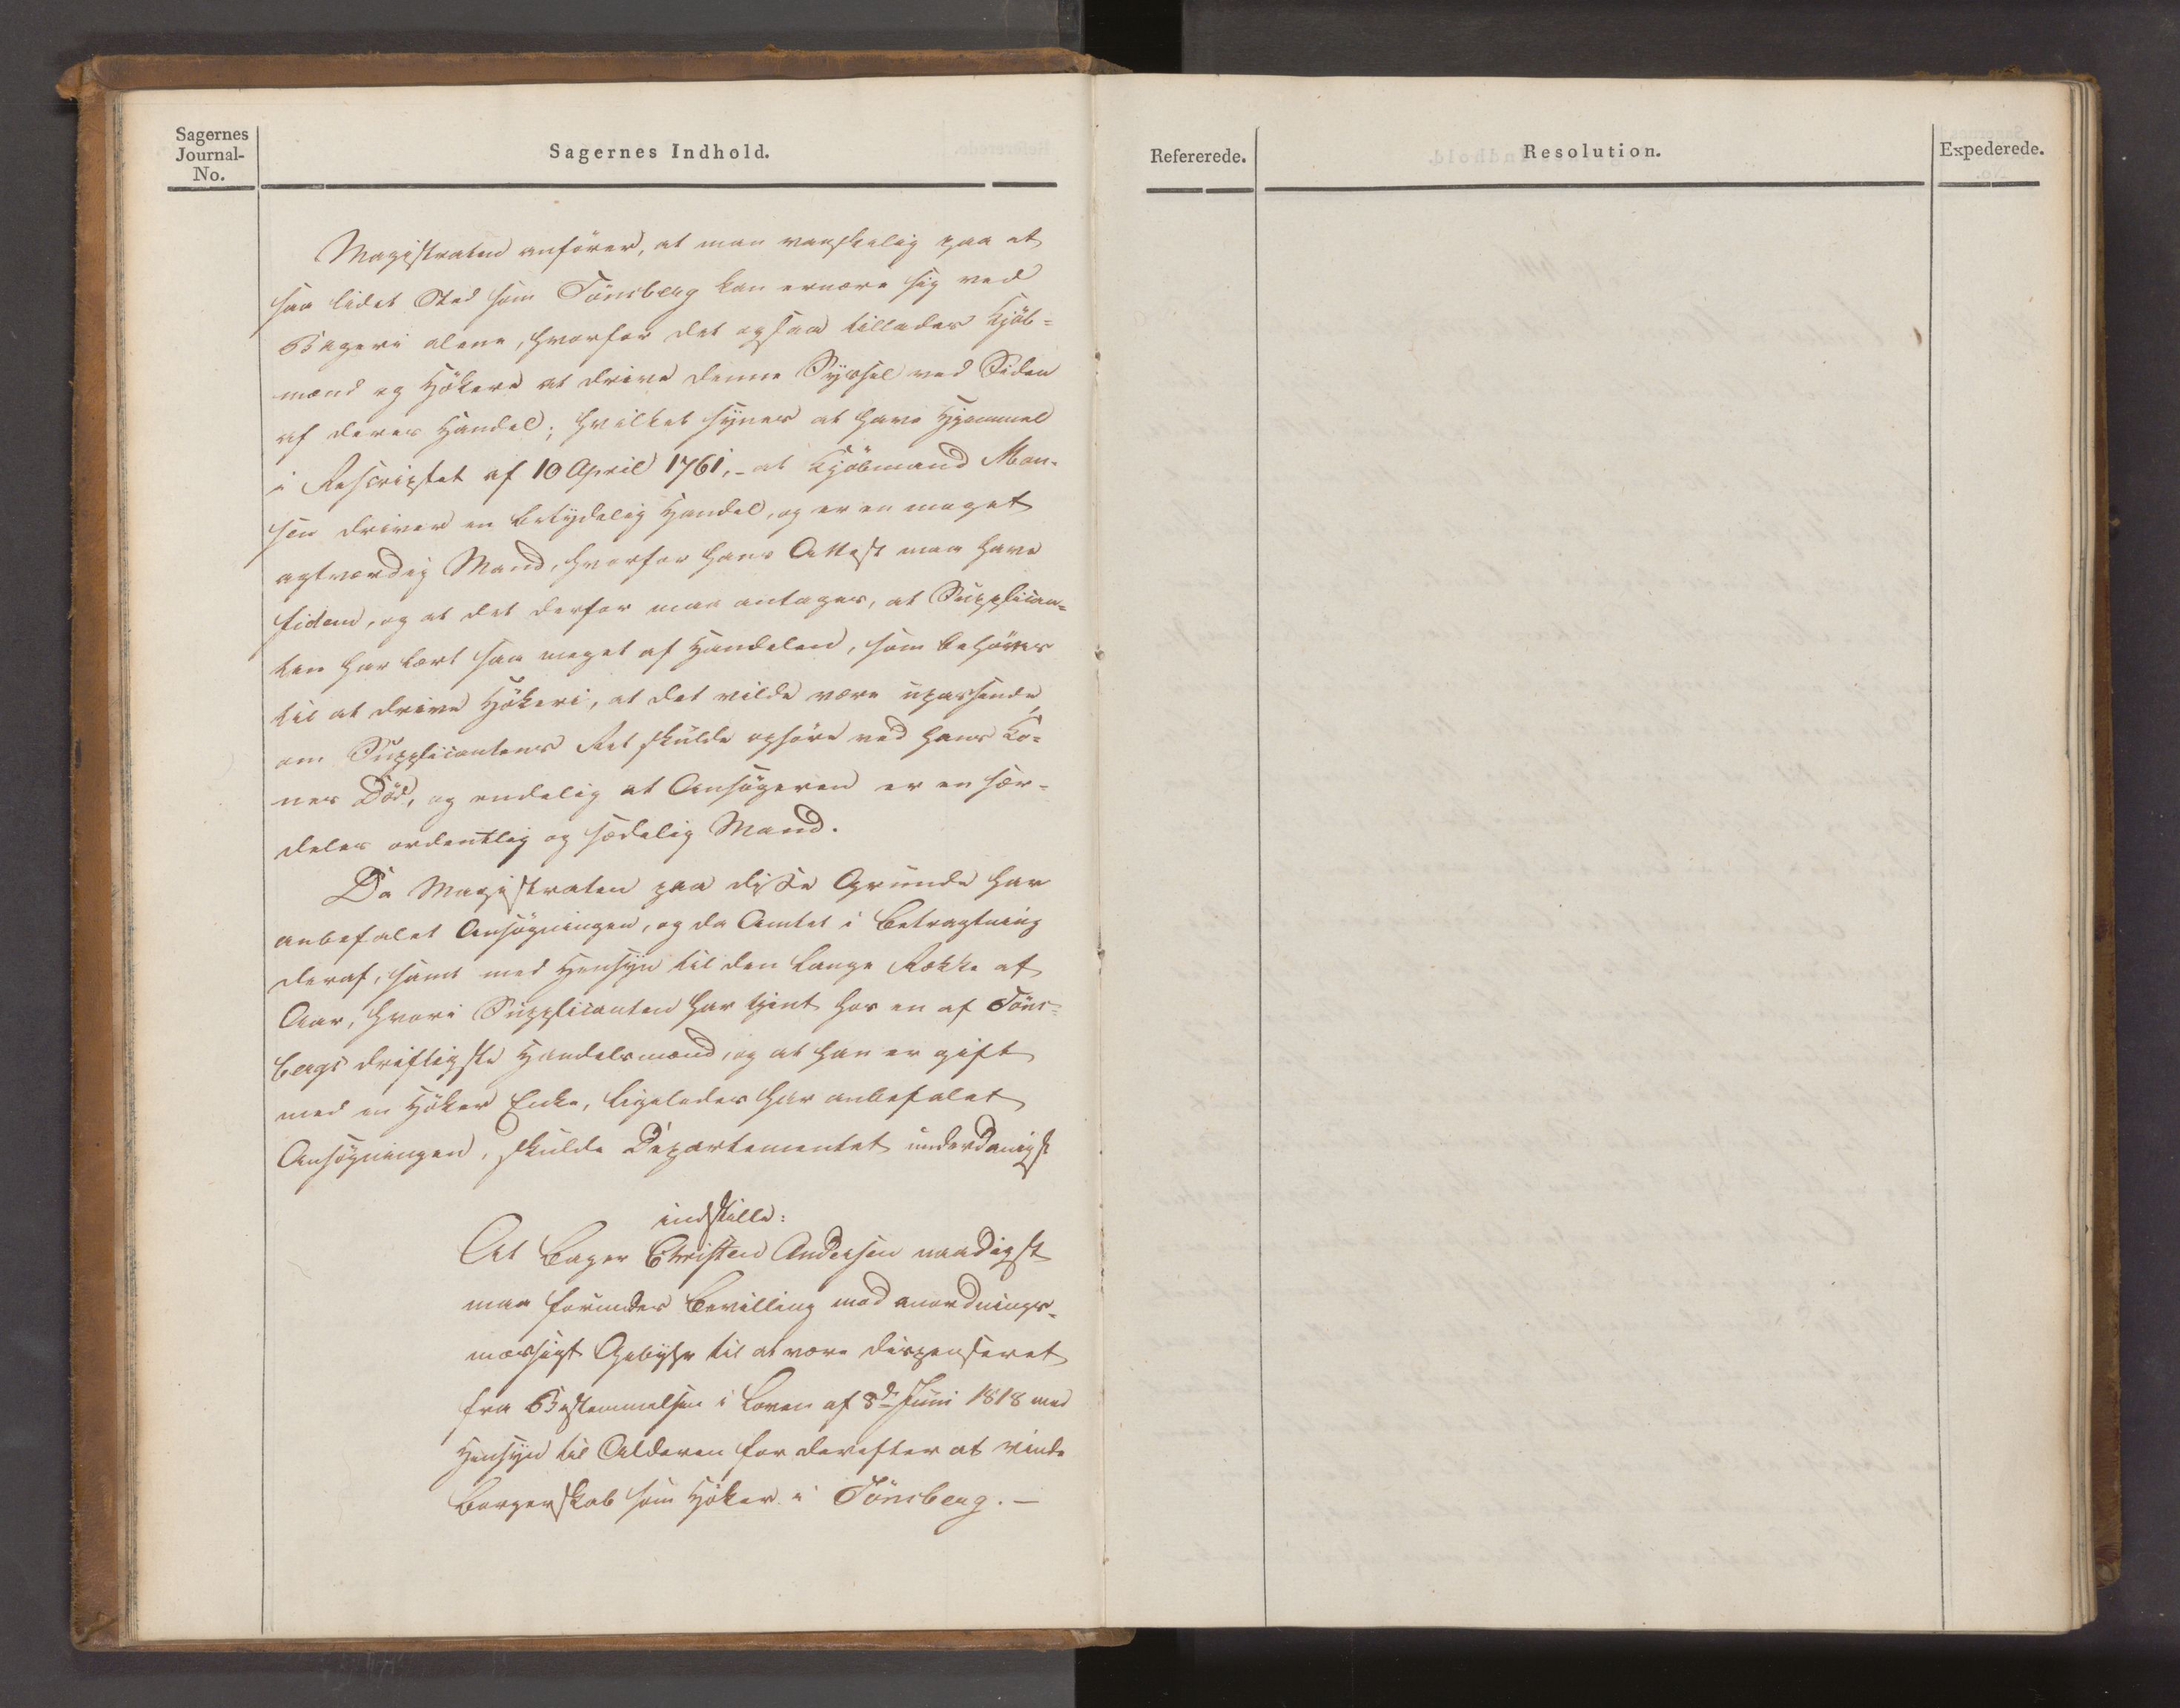 Sagernes
Journal-
No.
Sagernes Indhold.
Magistraten anfører, at man vanskelig paa et
saa lidet Sted som Tönsberg kan ernære sig ved
Bageri alene, hvorfor det ogsaa tillades Kjöb=
mænd og Hökere at drive denne Syssel ved Siden
af deres Handel; hvilket synes at have Hjemmel
i Rescriptet af 10 April 1761, - at Kjöbmand Mon-
sen driver en betydelig Handel, og er en meget
agtværdig Mand, hvorfor hans Attest maa have
fidem, og at det derfor maa antages, at Supplican=
ten har lært saa meget af Handelen, som behöves
til at drive Hökeri, at det vilde være upassende,
om Supplicantens Ret skulde ophöre ved hans Ko=
nes Död, og endelig at Ansögeren er en sær-
deles ordentlig og sædelig Mand.
Da Magistraten paa disse Grunde har
anbefalet Ansögningen, og da Amtet i Betragtning
deraf, samt med Hensyn til den lange Række af
Aar, hvori Supplicanten har tjent hos en af Töns=
bergs driftigste Handelsmænd, og at han er gift
med en Höker Enke, ligeledes har anbefalet
Ansögningen, skulde Departementet underdanigst
indstille:
At Bager Christen Andersen naadigst
maa forundes Bevilling mod anordnings-
mæssigt Gebyhr til at være dispenseret
fra Bestemmelsen i Loven af 8de Juni 1818 med
Hensyn til Alderen for derefter at vinde
Borgerskab som Höker i Tönsberg. —
Refererede.
Resolution.
Expederede.